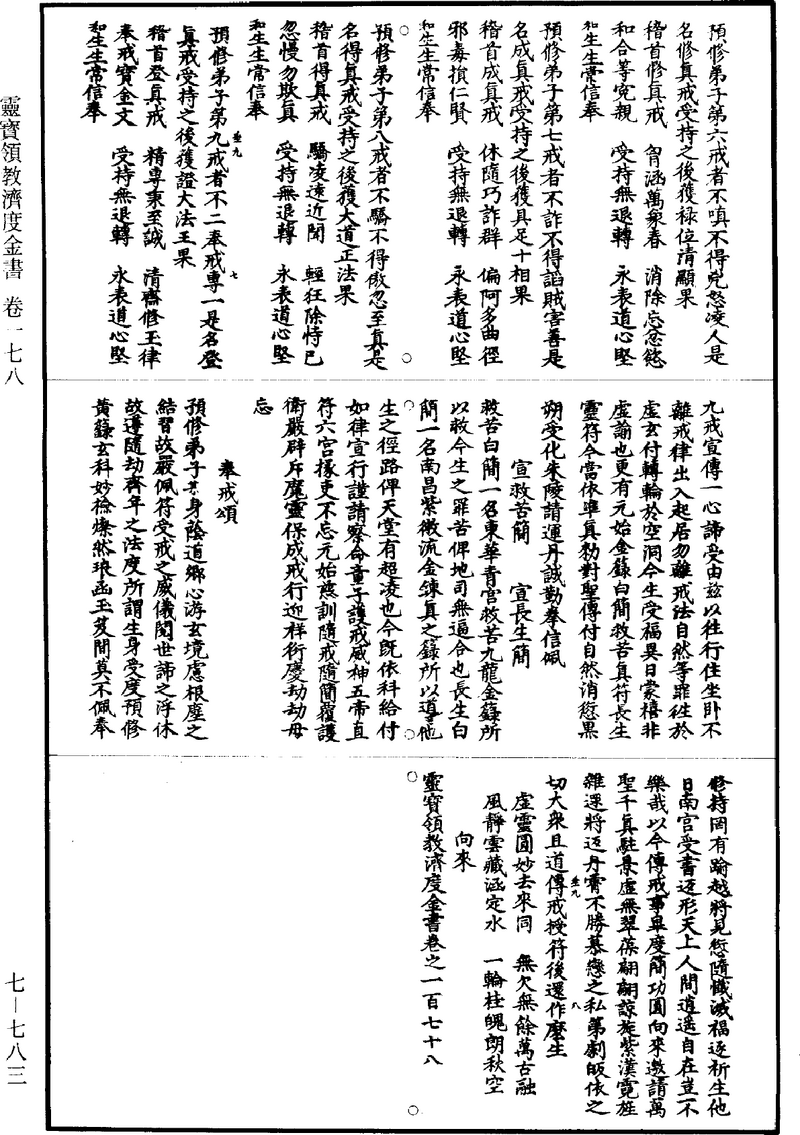 預修弟子第六戒者不嗔不得兇怒凌人是
名修真戒受持之後獲祿位清顯果
稽首修真戒　胷涵萬象春　消除忘忿慾
和合等寃親　受持無退轉　永表道心堅
和生生常信奉
預修弟子第七戒者不詐不得謟賊害善是
名成真戒受持之後獲具足十相果
稽首成真戒　休隨巧詐群　偏阿多曲徑
邪毒損仁賢　受持無退轉　永表道心堅
和生生常信奉
預修弟子第八戒者不驕不得傲忽至真是
名得真戒受持之後獲大道正法果
稽首得真戒　驕凌遠近聞　輕狂除恃己
忽慢勿欺真　受持無退轉　永表道心堅
和生生常信奉
預修弟子第九戒者不二奉戒專一是名登
真戒受持之後獲證大法王果
稽首登真戒　精專秉至誠　清齋修玉律
奉戒寶金文　受持無退轉　永表道心堅
和生生常信奉
九戒宣傳一心諦受由玆以往行住坐卧不
離戒律出入起居勿離戒法自然等罪徃於
虛玄付轉輪於空洞今生受福異日蒙禧非
虛諭也更有元始金籙白簡救苦真符長生
靈符今當依準真勑對聖傳付自然消愆黑
朔受化朱陵請運丹誠勤奉信佩
宣救苦簡　宣長生簡
救苦白簡一名東華青宮救苦九龍金籙所
以救今生之罪苦俾地司無逼合也長生白
簡一名南昌紫微流金鍊真之籙所以導他
生之徑路俾天堂有超凌也今既依科給付
如律宣行謹請察命童子護戒威神五帝直
符六宮掾吏不忘元始慈訓隨戒隨簡覆護
衛嚴辟斥魔靈保成戒行迎祥衍慶劫劫毋
忘
奉戒頌
預修弟子某身蔭道鄉心游玄境慮根塵之
結習故嚴佩符受戒之威儀閱世諦之浮休
故遵隨劫齊年之法度所謂生身受度預修
黃籙玄科妙檢燦然琅函玉笈間莫不佩奉
修持罔有踰越將見愆隨懺滅福逐祈生他
日南宮受書迓形天上人間逍遥自在豈不
樂哉以今傳戒事畢度簡功圓向來邀請萬
聖千真駐景虛無翠葆翩翩諒旋紫漢霓旌
雜遝將迓丹霄不勝慕戀之私第劇皈依之
切大衆且道傳戒授符後還作麽生
虛靈圓妙去來同　無欠無餘萬古融
風靜雲藏涵定水　一輪桂魄朗秋空
向來
靈寶領教濟度金書卷之一百七十八
靈寶領教濟度金書　卷一七八
七—七八三